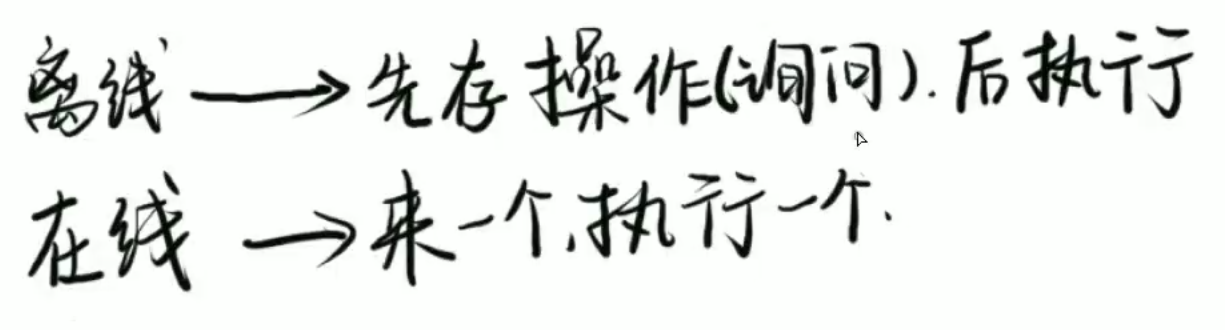 离线 → 先存操作(询问).后执行
在线 → 来一个,执行一个.